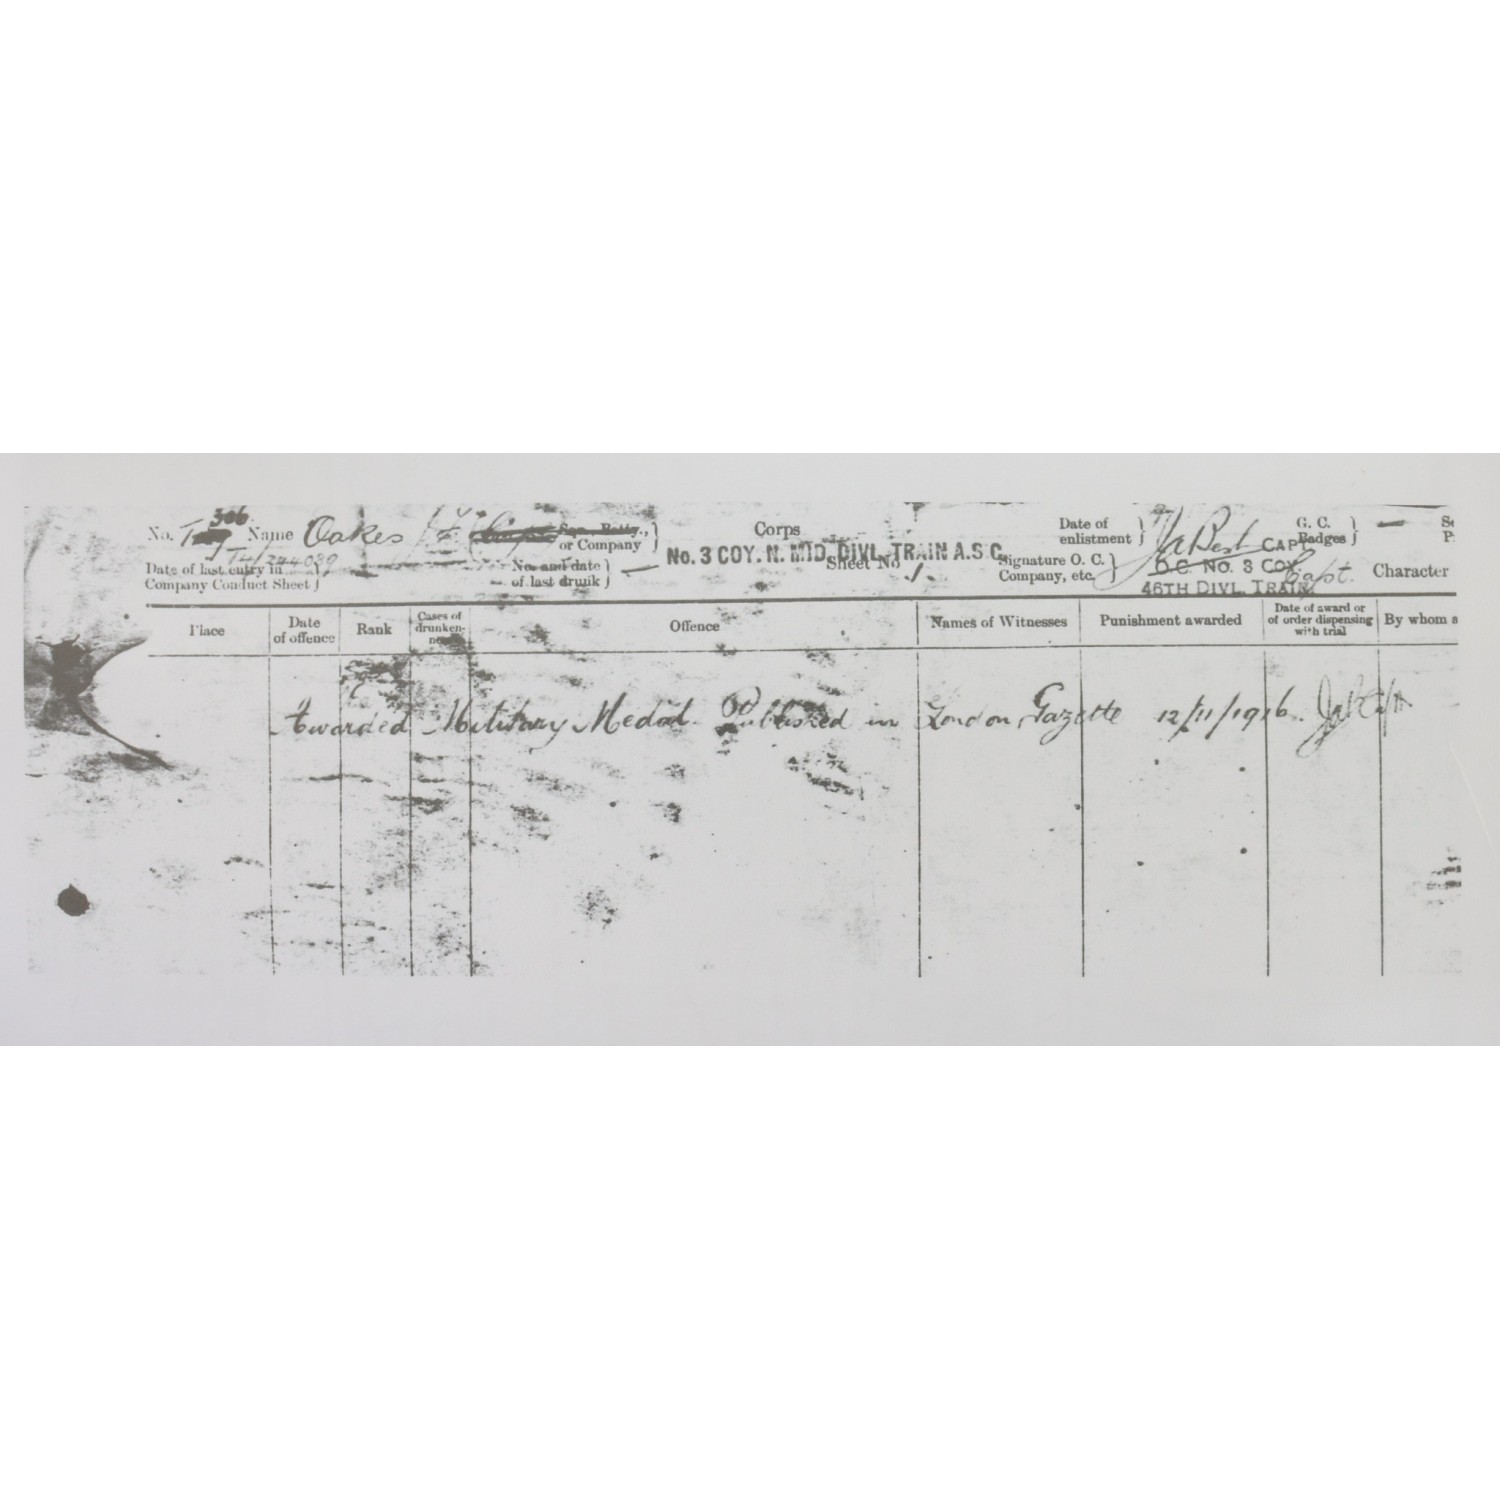 306
No. T Name Oakes F Sqn., Batty., or Company } Corps Date of enlistment } G. C. Badges } —
T4/244089
No. 3 COY. N. MID. DIVL. TRAIN A.S.C.
JaBest CAPT
O.C. NO. 3 COY.
Capt.
46TH DIVL. TRAIN
Date of last entry in Company Conduct Sheet } No. and date of last drunk } — Sheet No 1. Signature O. C. Company, etc. } Character
Place Date of offence Rank Cases of drunken-ness Offence Names of Witnesses Punishment awarded Date of award or of order dispensing with trial By whom a
Awarded Military Medal. Published in London Gazette 12/11/1916.